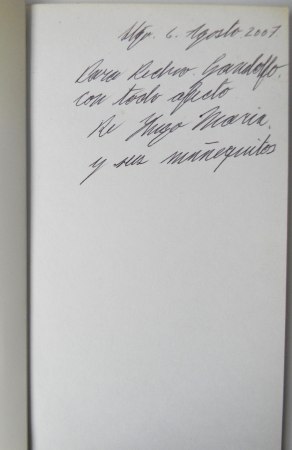 Stgo. 6. Agosto 2007
Para Pedro Gandolfo.
con todo afecto
de Hugo Marín.
y sus muñequitos